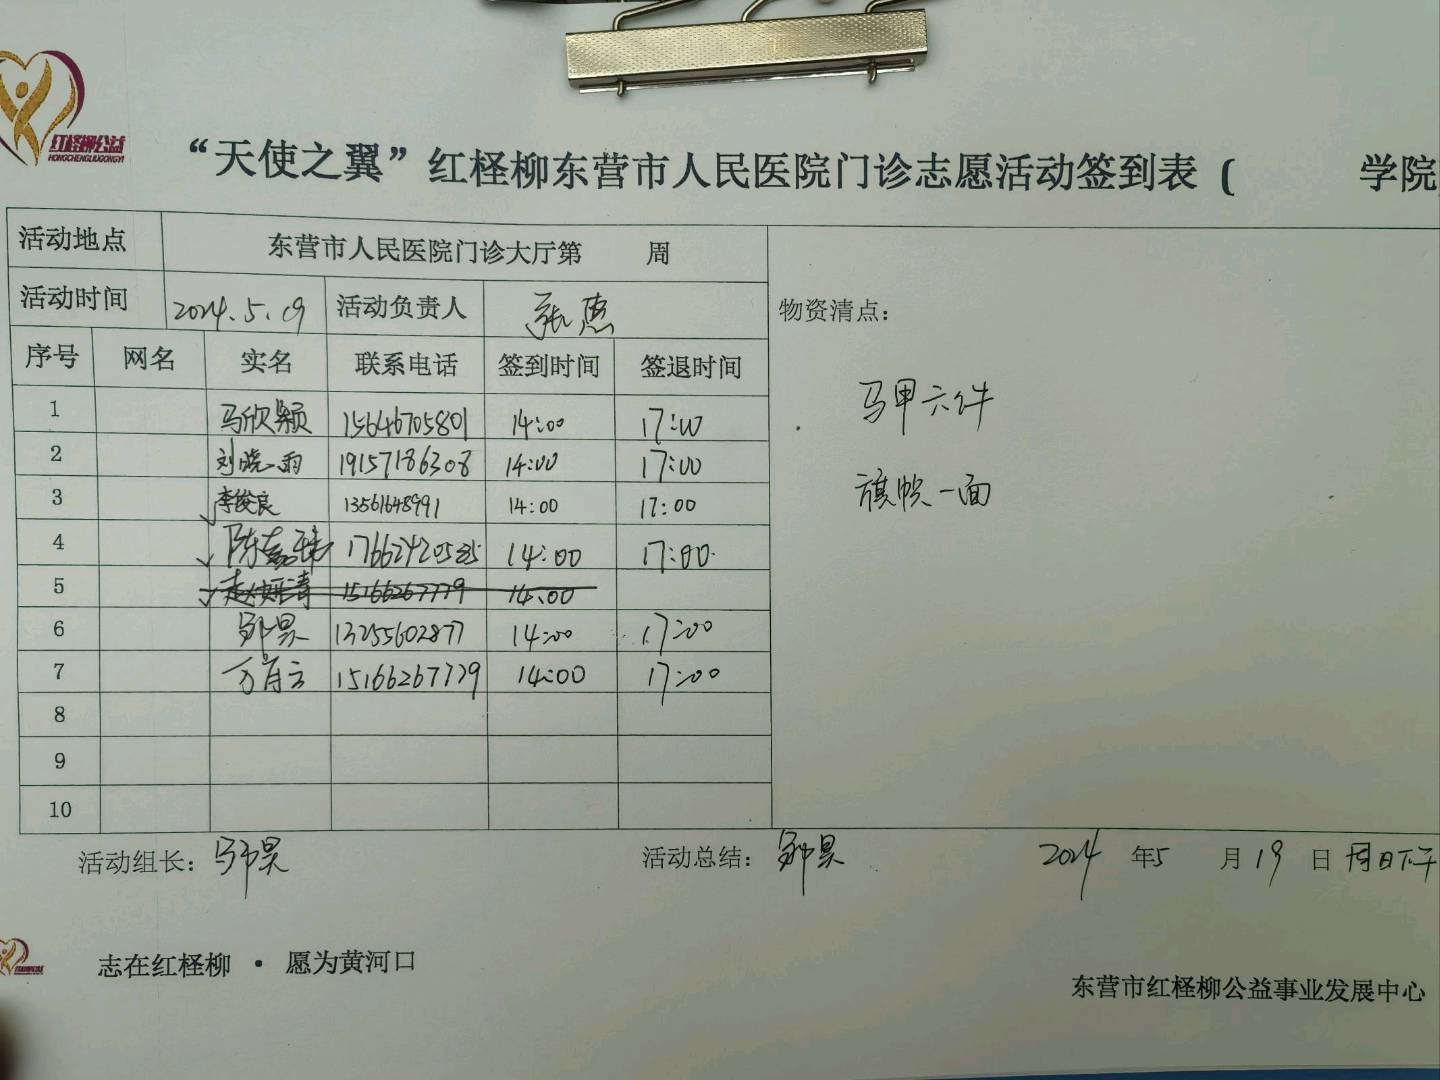 红柽柳公益
HONGCHENGLIUGONGYI
“天使之翼”红柽柳东营市人民医院门诊志愿活动签到表 ( 学院
活动地点 东营市人民医院门诊大厅第 周
活动时间 2024.5.19 活动负责人
物资清点：
序号 网名 实名 联系电话 签到时间 签退时间
1 马欣颖 15646705801 14:00 17:00
2 刘晓雨 19157186308 14:00 17:00
3 李俊良 13561648991 14:00 17:00
4 14:00 17:00
5 15166267779 14:00
6 邹昊 13255602877 14:00 17:00
7 万肖云 15166267779 14:00 17:00
8
9
10
马甲六件
旗帜一面
活动组长：邹昊 活动总结：邹昊 2024 年5 月19 日 周日下午
志在红柽柳 · 愿为黄河口
东营市红柽柳公益事业发展中心